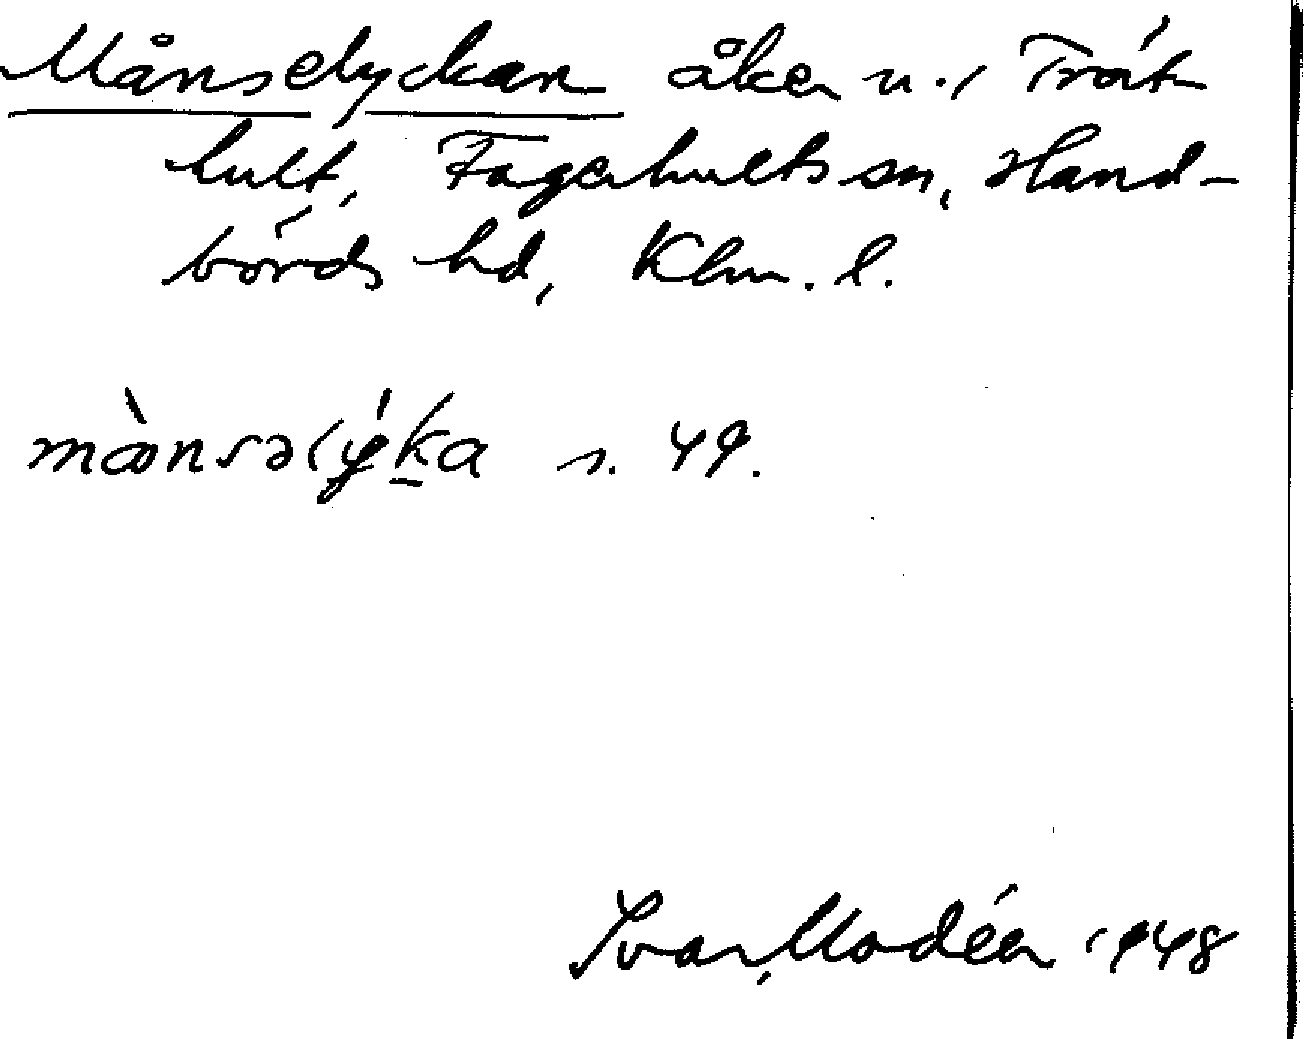 Månselyckan åker u. Tröt
hult, Fagerhults sn, Hand-
börds hd, Klm. l.
månsəlyka s. 49.
Ivar Modéer 1948